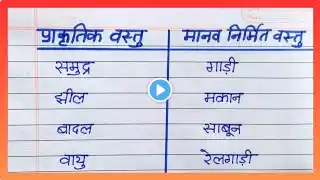 प्राकृतिक वस्तु मानव निर्मित वस्तु
समुद्र गाड़ी
झील मकान
बादल साबुन
वायु रेलगाड़ी